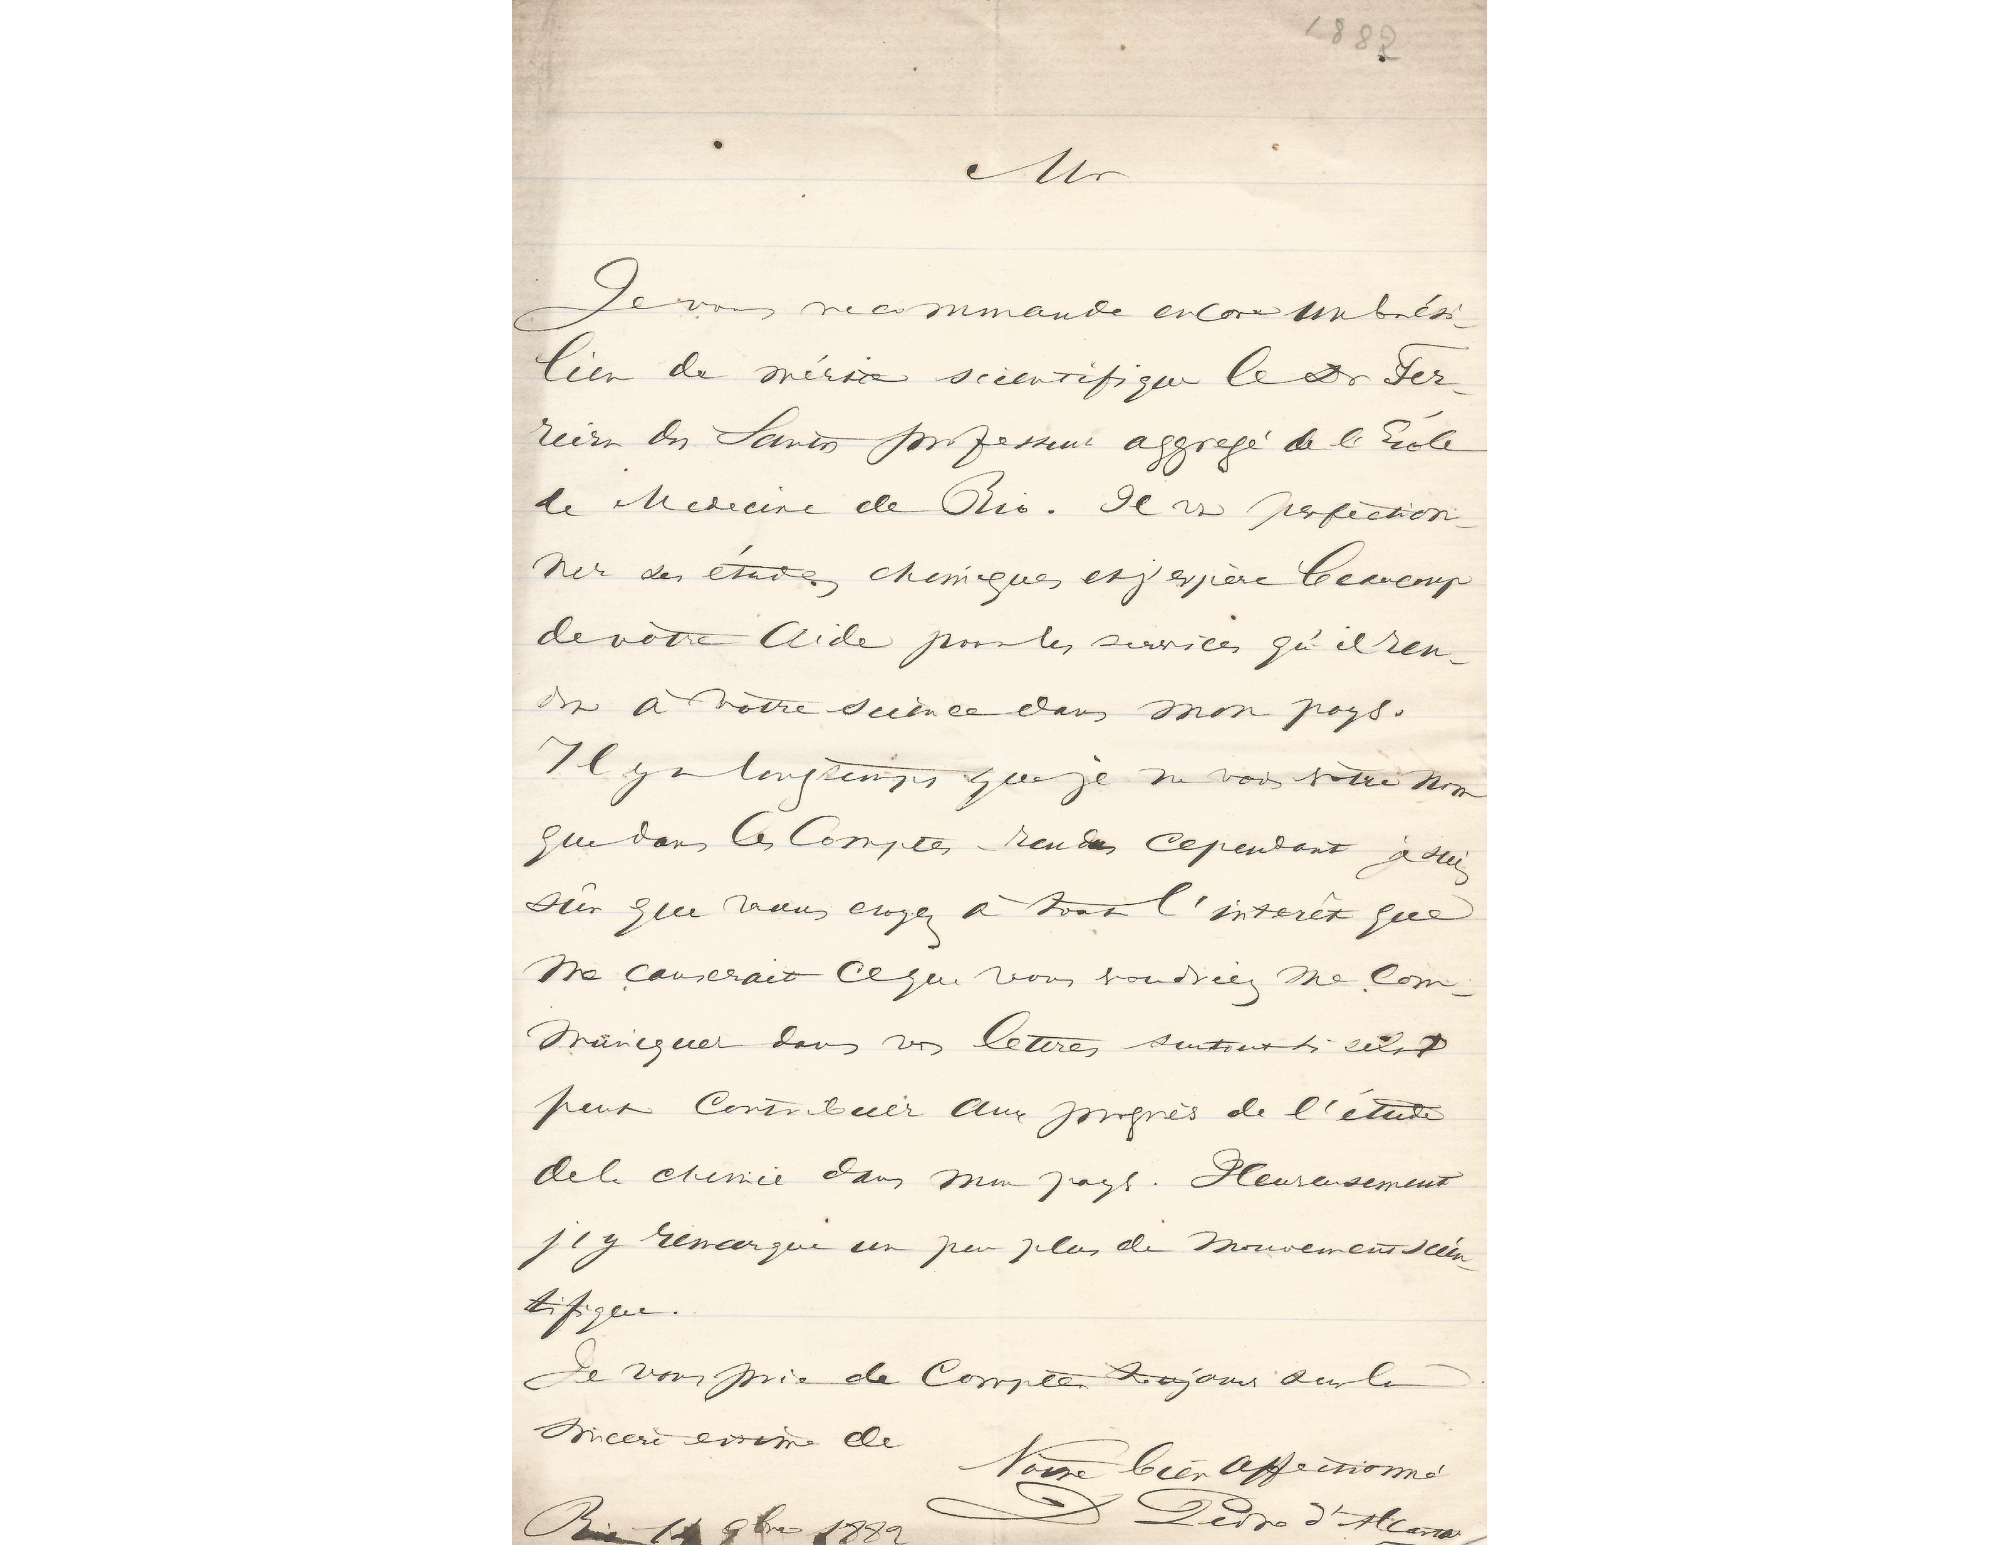 1882
Mr
Je vous recommande encore un brési-
lien de mérite scientifique le Dr Fer-
reira dos Santos professeur aggregé de l'École
de Medecine de Rio. Il va perfection-
ner ses études chimiques et j'espère beaucoup
de vôtre aide pour les services qu'il ren-
dra à vôtre science dans mon pays.
Il y a longtemps que je ne vois vôtre nom
que dans les Comptes rendus cependant je suis
sûr que vous croyez à tout l'interêt que
me causerait ce que vous voudriez me com-
muniquer dans vos lettres surtout si cela
peut contribuer aux progrès de l'étude
de la chimie dans mon pays. Heureusement
j'y remarque un peu plus de mouvement scien-
tifique.
Je vous prie de compter toujours sur la
sincère estime de
Votre bien affectionné
D. Pedro d'Alcantara
Rio 9bre 1882